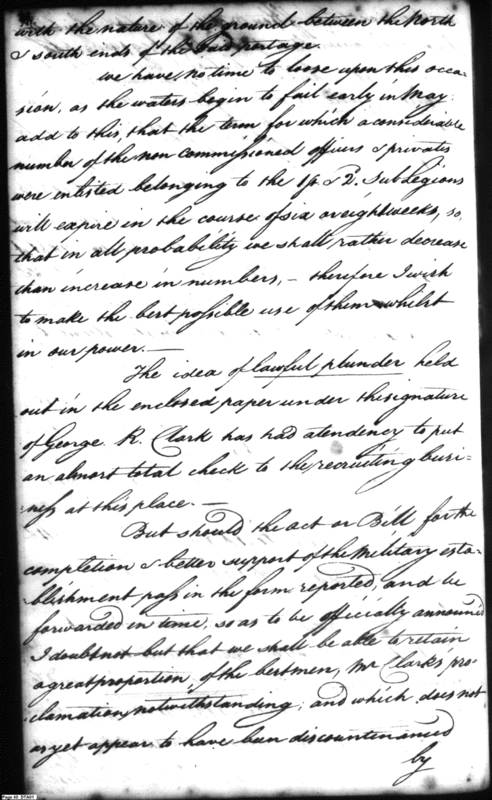 with the nature of the ground between the North
& south ends of the said portage.
we have no time to loose upon this occa-
sion, as the waters begin to fail early in May;
add to this, that the term for which a considerable
number of the non commissioned officers & privates
were enlisted belonging to the 1st & 2d. Sub Legions
will expire in the course of six or eight weeks, so
that in all probability we shall rather decrease
than increase in numbers, — therefore I wish
to make the best possible use of them whilst
in our power. —
The idea of lawful plunder held
out in the enclosed paper under the signature
of George R. Clark has had a tendency to put
an almost total check to the recruiting busi-
ness at this place. —
But should the act or Bill for the
completion & better support of the Military esta-
blishment pass in the form reported, and be
forwarded in time, so as to be officially announced
I doubt not but that we shall be able to retain
a great proportion of the best men, Mr Clark's pro-
clamation, notwithstanding; and which does not
as yet appear to have been discountenanced
by
Page 48